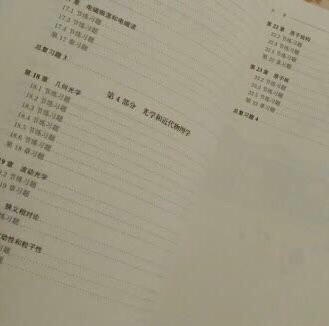 章 电磁振荡和电磁波
17.1 节练习题
17.3 节练习题
17.4 节练习题
第 17 章习题
总复习题 3
第 4 部分 光学和近代物理学
第 18 章 几何光学
18.1 节练习题
18.2 节练习题
18.3 节练习题
18.4 节练习题
18.5 节练习题
18.6 节练习题
第 18 章习题
章 波动光学
节练习题
19 章习题
狭义相对论
练习题
动性和粒子性
练习题
题
第 22 章 原子结构
22.2 节练习题
22.3 节练习题
22.4 节练习题
第 22 章习题
第 23 章 原子核
23.2 节练习题
节练习题
23.5 节练习题
第 23 章习题
总复习题 4